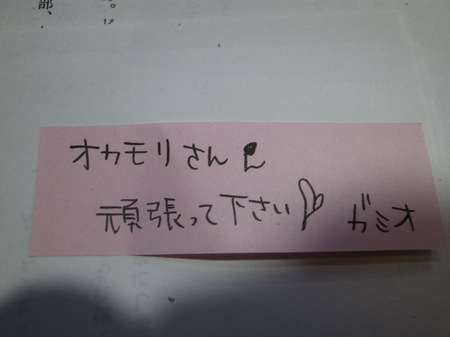 オカモリさん♪
頑張って下さい! ガミオ
部、